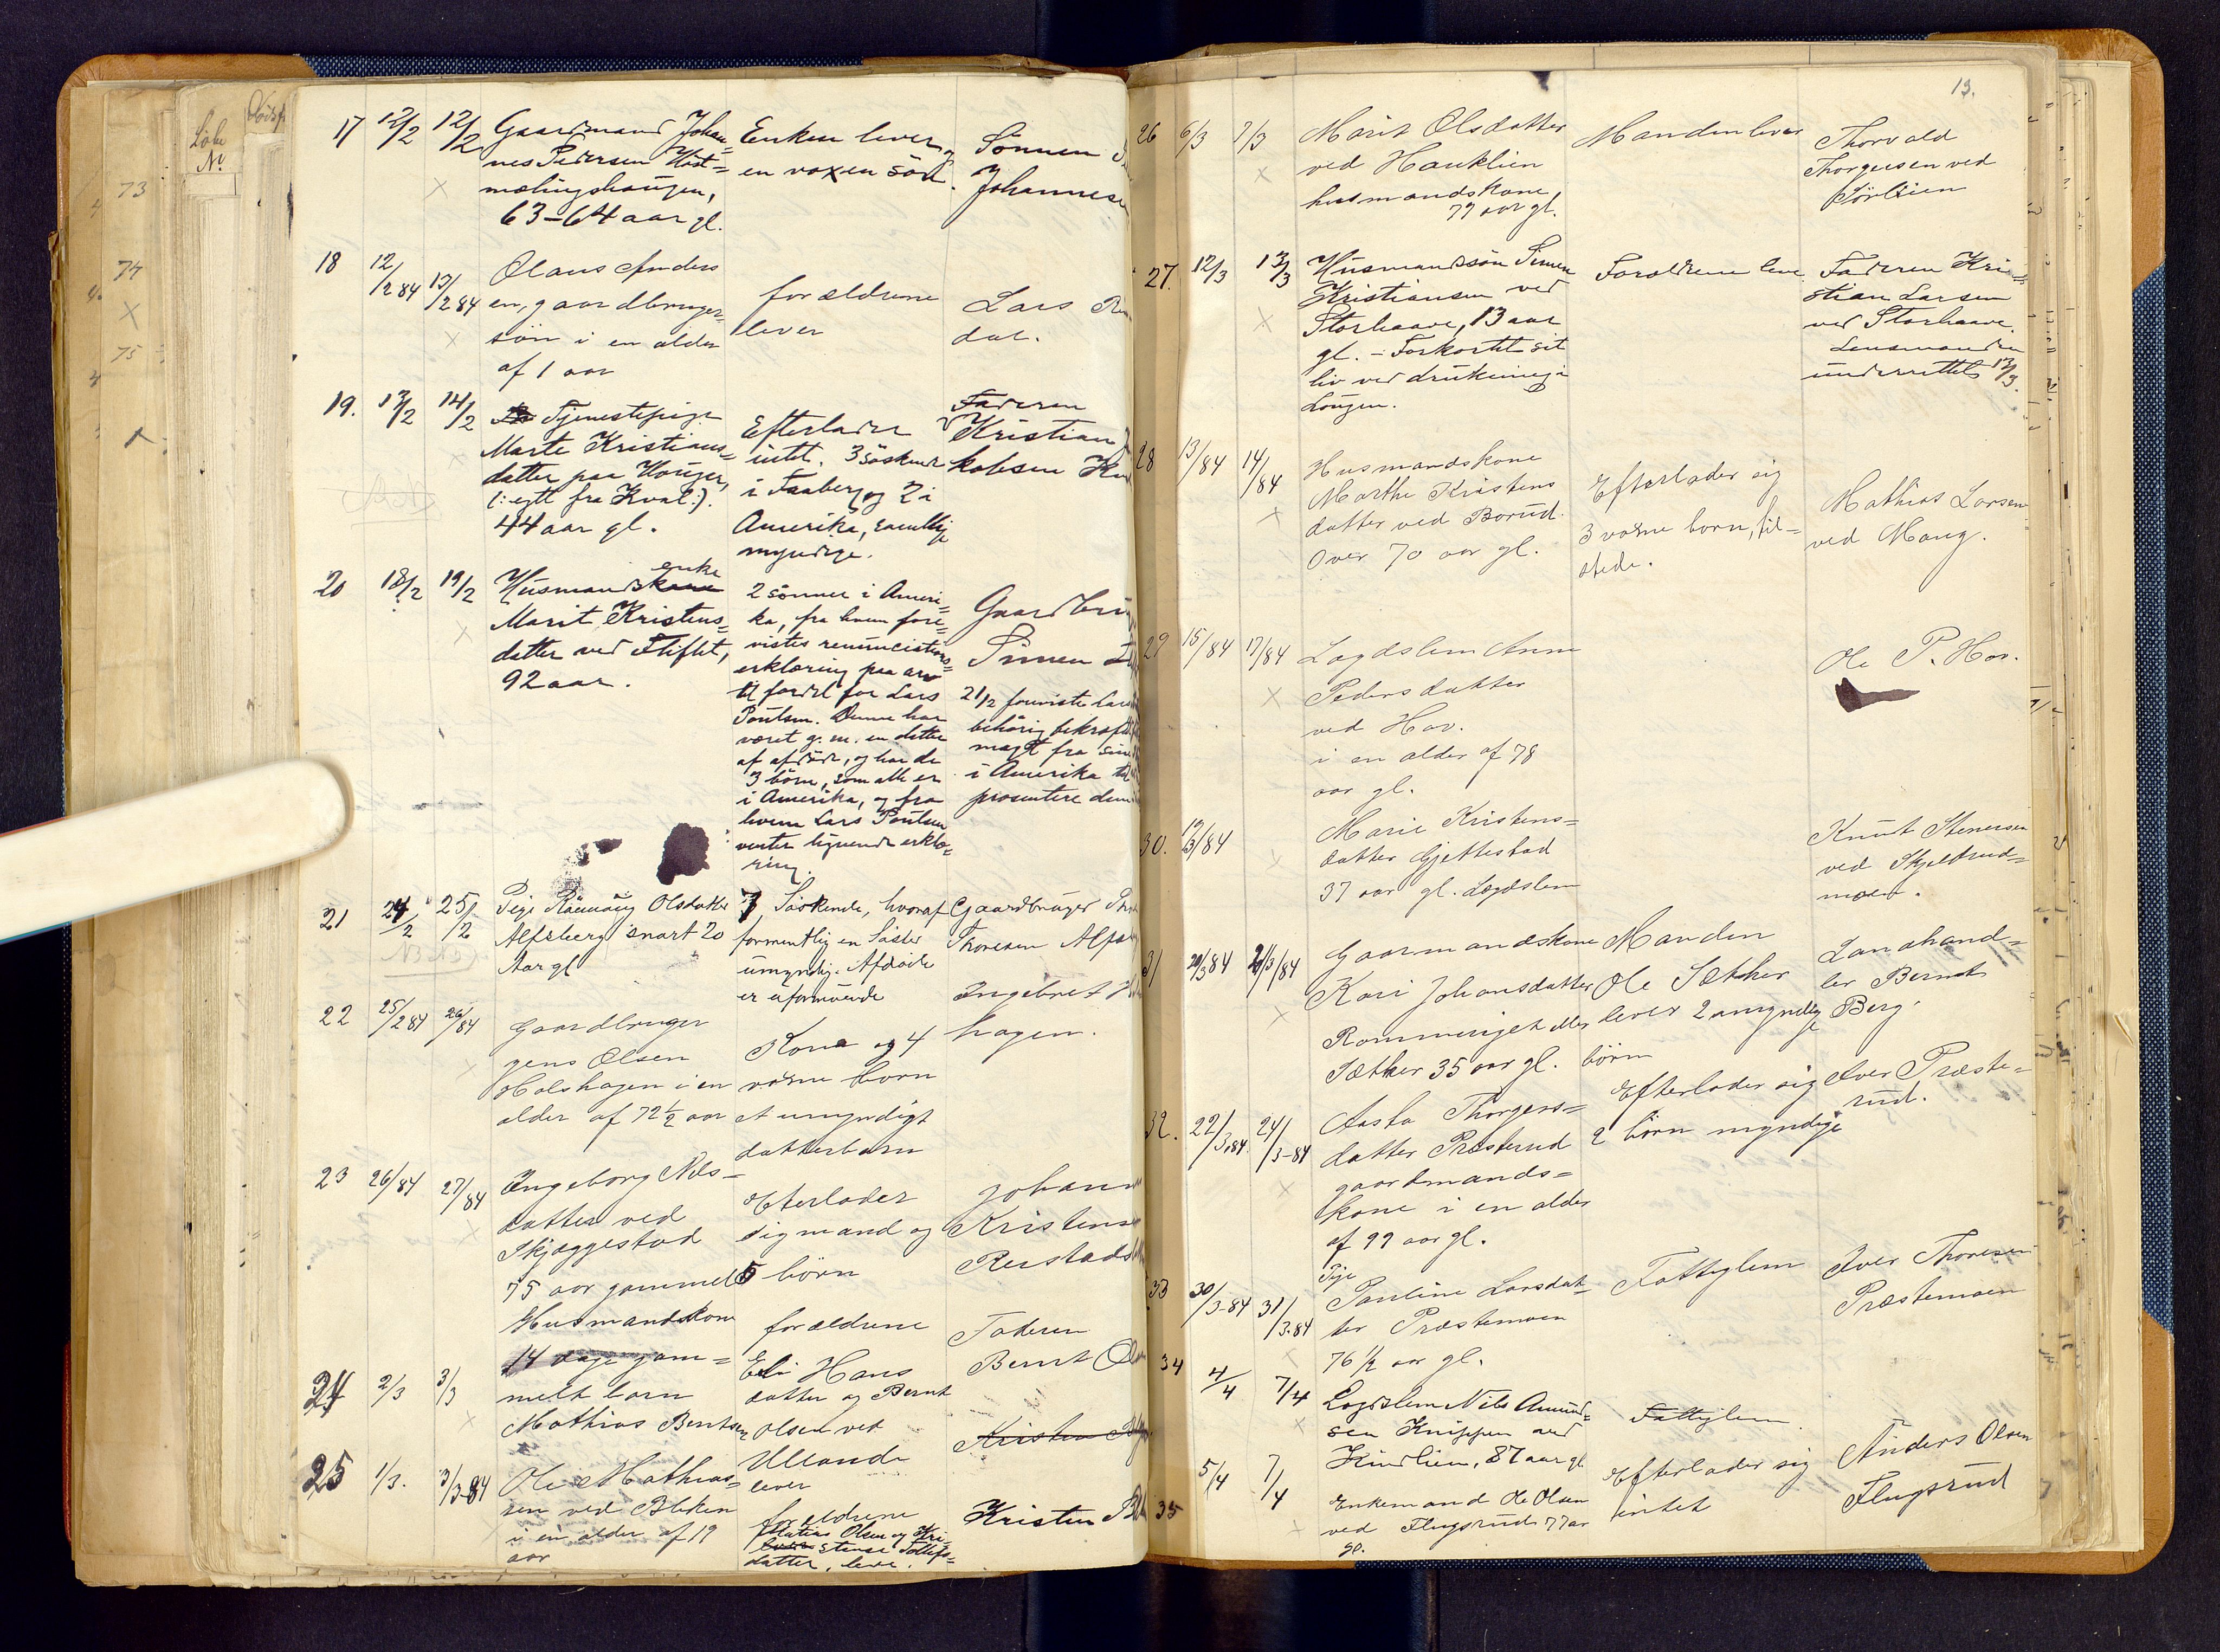 Löbe
No.
73
74
75
17 12/2 12/2 Gaardmand Johan=
nes Pedersen
63-64 aar gl.
Enken lever og
en voxen sön.
Sönnen
Johannes
18 12/2 84 13/2 84 Olaus Anders
en, gaardbruger
sön i en alder
af 1 aar
forældrene
lever
Lars
dal.
19. 13/2 14/2 Tjenestepige
Marte Kristians=
datter paa Houger,
(: egtl fra Kval :).
44 aar gl.
Efterlader
intet. 3 söskende
i Faaberg og 2 i
Amerika, samtlige
myndige.
Faderen
Kristian
kobsen
20 18/2 19/2 Husmandskone
enke
Marit Kristens=
datter ved Fliflet,
92 aar.
2 sönner i Ameri=
ka, fra hvem fore=
vistes renunciations=
erklæring paa arv
til fordel for Lars
Poulsen. Denne har
været g. m. en datter
af afdöde, og har de
3 börn, som alle er
i Amerika, og fra
hvem Lars Poulsen
venter lignende erklæ=
ring.
Gaardbru
Simen
21/2 foreviste Lars
behörig bekræft
magt fra sine
i Amerika til
præsentere dem
21 24/2 25/2 Pige Rönnaug Olsdatter
Alfsberg snart 20
Aar gl
7 Söskende, hvoraf
formentlig en Söster
umyndig. Afdöde
er uformuende
Gaardbruger
Thoresen Alfs
22 25/2 84 26/84 Gaardbruger
Jens Olsen
Holshagen i en
alder af 72 1/2 aar
Kone og 4
voxne born
et umyndigt
datterbarn
Ingebret
hagen.
23 26/84 27/84 Ingeborg Nils=
datter ved
Skjæggestad
75 aar gammel
Husmandskone
Efterlader
sig mand og
5 börn
Johann
Kristens
Rustads
24 2/3 3/3 14 dage gam=
melt barn
Mathias Berntsen
forældrene
Eli Hans
datter og Bernt
Olsen ved
Ullande
lever
Faderen
Bernt
Kristen
25 1/3. 3/3-84 Ole Mathias=
sen ved Bleken
i en alder af 19
aar
forældrene
Matias Olsen og Kri=
stense Tollefs=
datter, lever.
Kristen
13.
26 6/3 7/3 Marit Olsdatter
ved Hauklien
husmandskone,
77 aar gl.
Manden lever
Thorvald
Thorgersen ved
Sörlien
27. 12/3 13/3 Husmandssön Simen
Kristiansen ved
Storhaave, 13 aar
gl. - Forkortet sit
liv ved drukning i
Lougen.
Forældrene leve
Faderen Kri=
stian Larsen
ved Storhaave.
Lensmanden
underrettet 13/3.
28 13/84 14/84 Husmandskone
Marthe Kristens
datter ved Borud.
Over 70 aar gl.
Efterlader sig
3 voxne born, til=
stede.
Mathias Larsen
ved Maug.
29 15/84 17/84 Lægdslem Anne
Pedersdatter
ved Hov.
i en alder af 78
aar gl.
Ole P. Hov.
30. 19/3/84 Marie Kristens=
datter Gjettestad
37 aar gl. Lægdslem
Knut Stenersen
ved Skjelbrud=
moen.
31 20/3 84 21/3/84 Gaarmandskone
Kari Johansdatter
Romminget eller
Sæther 35 aar gl.
Manden
Ole Sæther
lever 2 umyndige
börn
Landhand=
ler Bernt
Berg.
32. 22/3.84. 24/3-84 Aasta Thorgers=
datter Præsterud
gaardmands=
kone i en alder
af 77 aar gl.
Efterlader sig
2 börn myndige
Iver Præste=
rud.
33 30/3-84 31/3.84 Pige
Pauline Larsdat=
ter Præstemoen
76 1/2 aar gl.
Fattiglem
Iver Thoresen
Præstemoen
34 4/4 7/4 Lægdslem Nils Amund=
sen Knippen ved
Kindlien, 87 aar gl
Fattiglem
35 5/4 7/4 Enkemand Ole Olsen
ved Flugsrud 77 aar
gl.
Efterlader sig
intet
Anders Olsen
Flugsrud